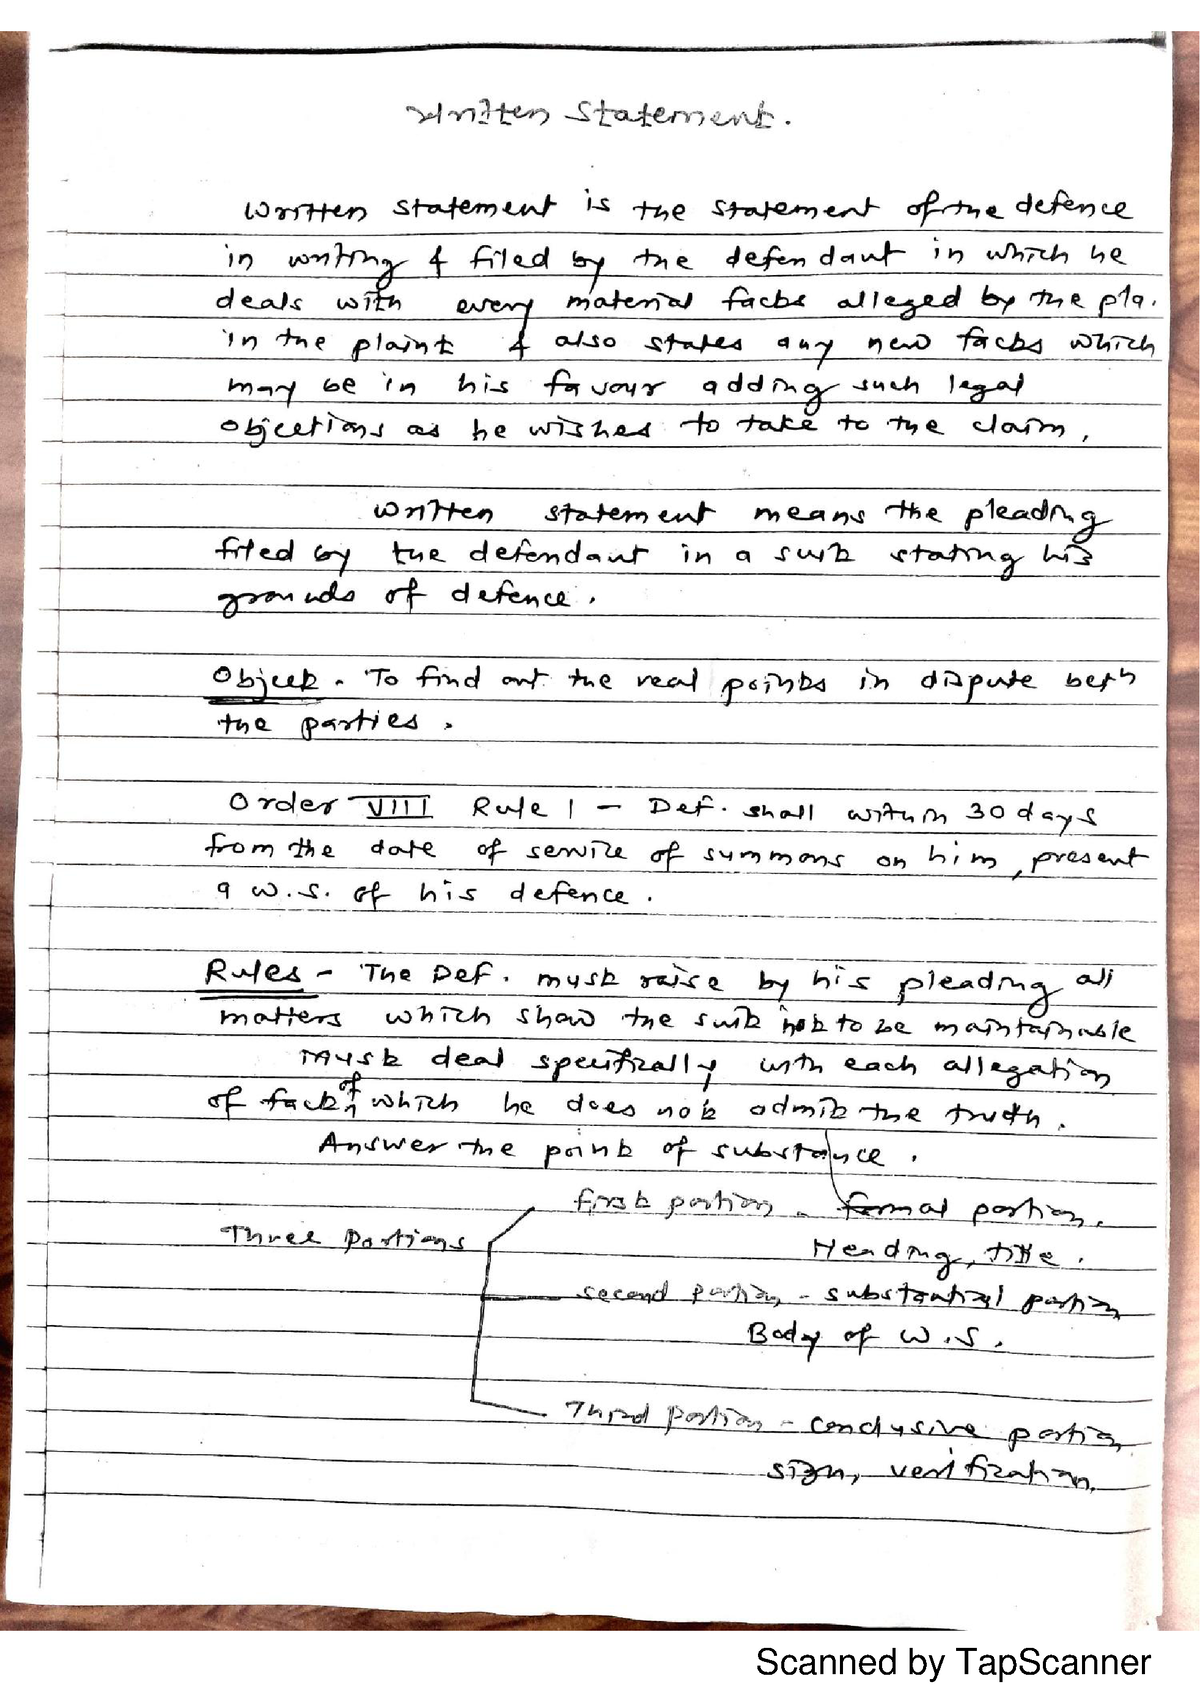 Written Statement.
Written statement is the statement of the defence
in writing & filed by the defendant in which he
deals with every material facts alleged by the pla.
in the plaint & also states any new facts which
may be in his favour adding such legal
objections as he wishes to take to the claim,
Written statement means the pleading
filed by the defendant in a suit stating his
grounds of defence.
Object - To find out the real points in dispute betn
the parties.
Order VIII Rule 1 - Def. shall within 30 days
from the date of service of summons on him, present
a W.S. of his defence.
Rules - The Def. must raise by his pleading all
matters which show the suit not to be maintainable
Must deal specifically with each allegation
of fact of which he does not admit the truth.
Answer the point of substance.
first portion - formal portion.
Three Portions
Heading, title.
second portion - substantial portion
Body of W.S.
Third portion - conclusive portion
sign, verification.
Scanned by TapScanner